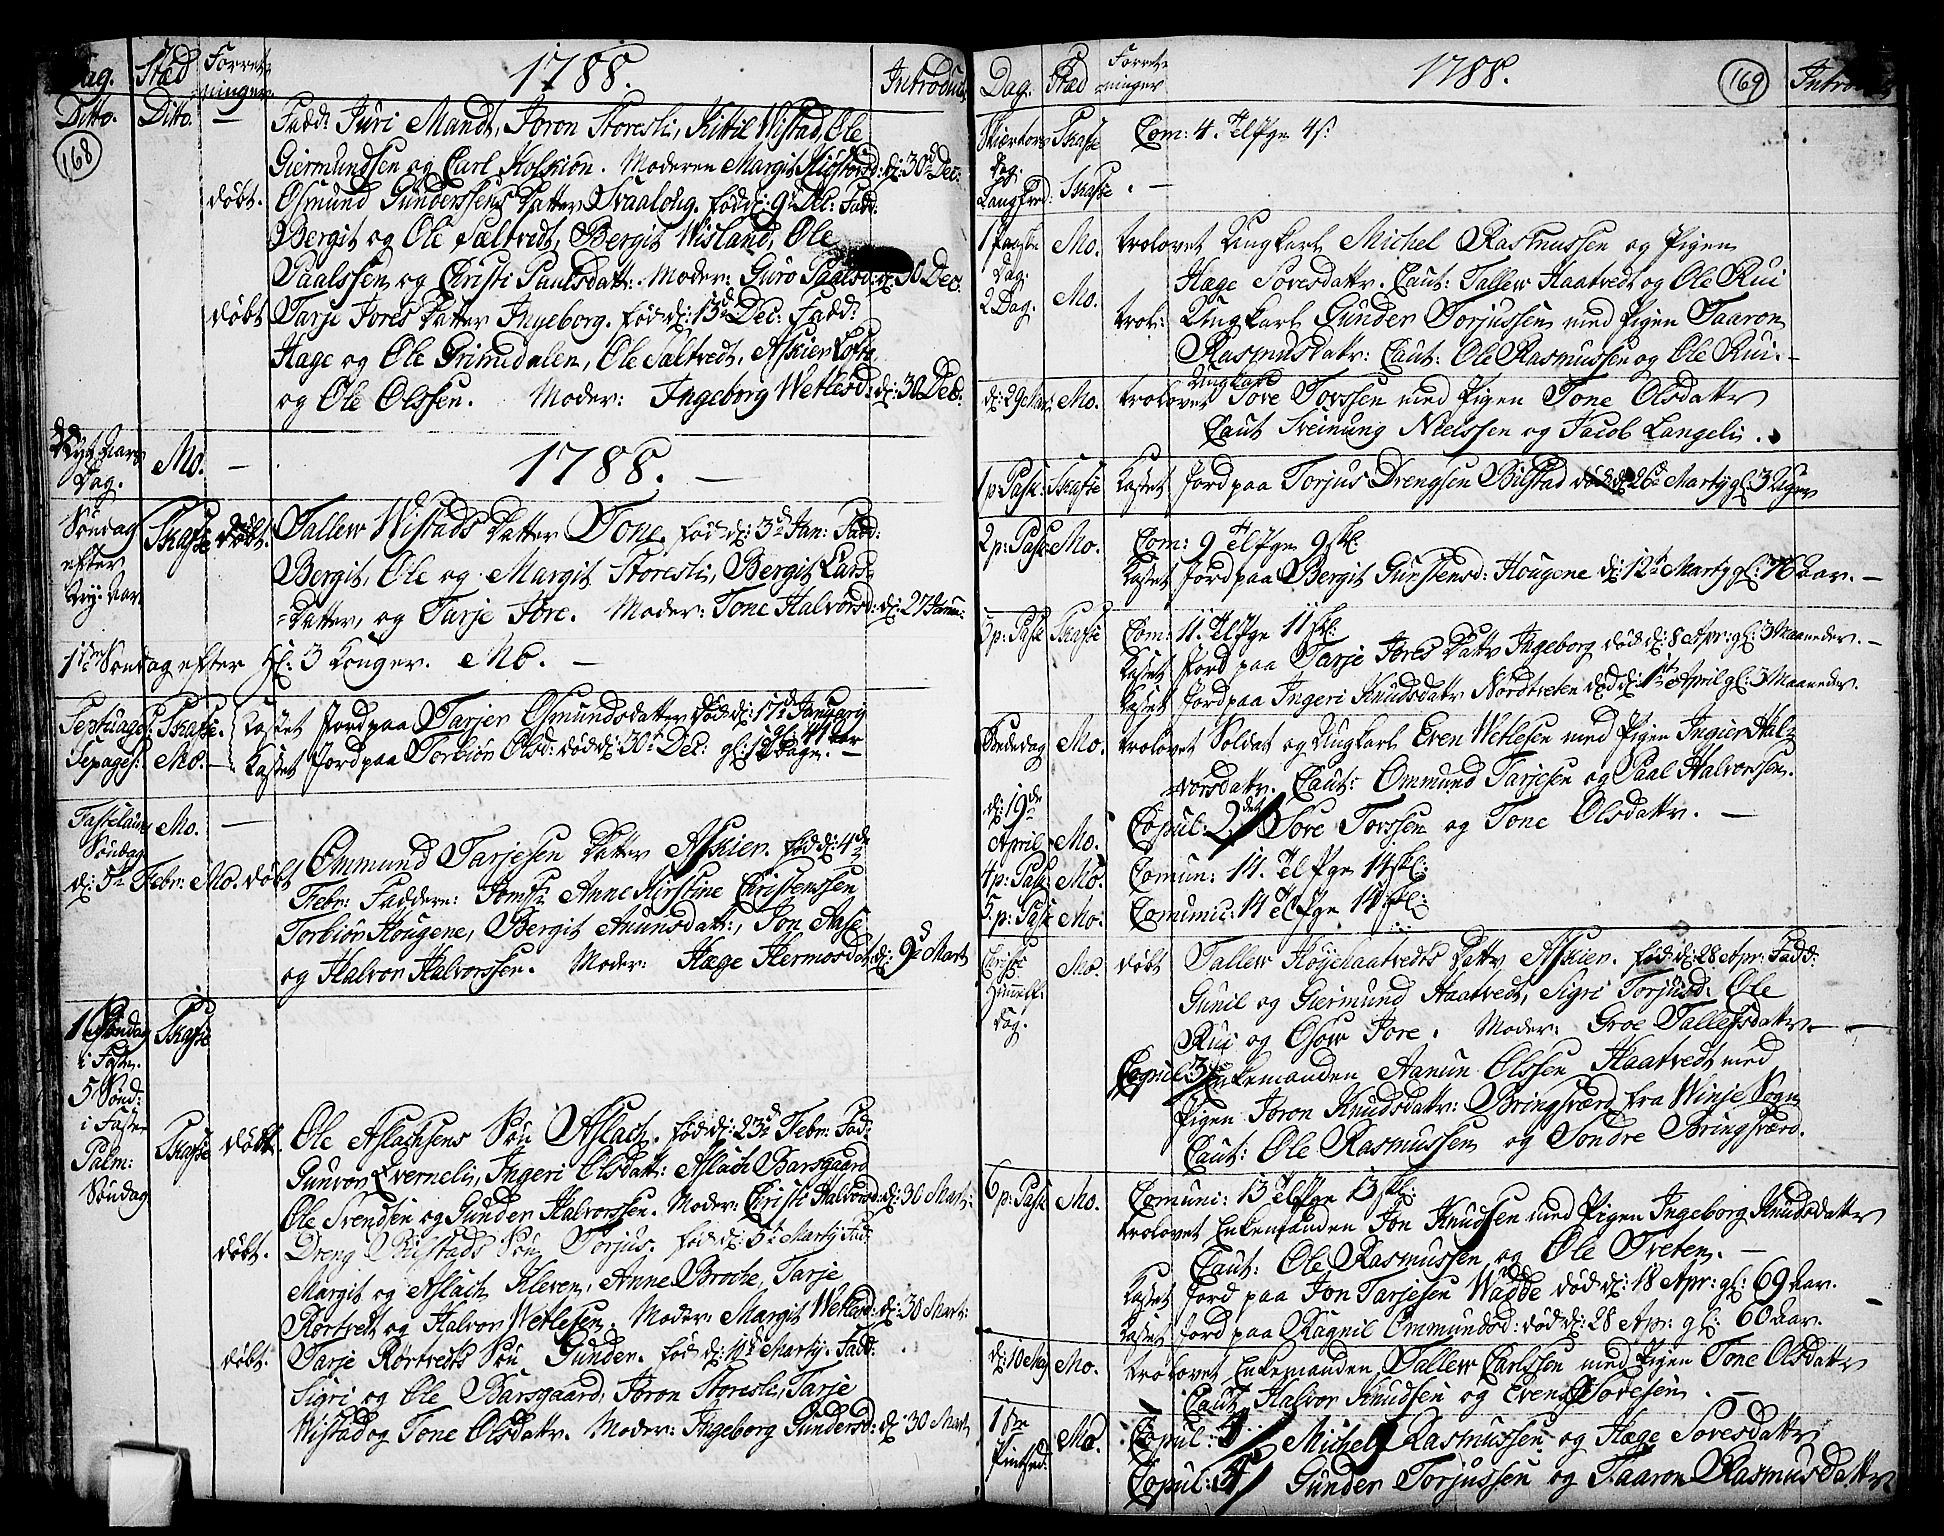 Dag. Stæd Forretninger 1788. Introduc
168
Ditto. Ditto. — Fadd: Juri Mandt, Joron Storesli, Kittil Wistad, Ole
Giermundsen og Carl Kolskiøn. Moderen Margit d: 30d Dec:
døbt. Osmund Gunderssens Datter Svaalaug. fød d: 9d Dec: Fadd:
Bergit og Ole Saltvedt, Bergit Wisland, Ole
Paalssen og Christi Paulsdatt:. Moder: Guro Paalsd: d: 30 Dec:
døbt Tarje Jores Datter Ingeborg. fød d: 13d Dec: Fadd:
Hage og Ole Grimedalen, Ole Saltvedt, Askier Lofte
og Ole Olssen. Moder: Ingeborg Wetlesd: d: 30 Dec:
Nyt Aars Dag. Mo. — 1788. —
Søndag efter Ny: Aar Skafse døbt. Tallew Wistads Datter Tone. fød d: 3d Jan: Fadd:
Bergit, Ole og Margit Storesli, Bergit Lars=
=Datter, og Tarje Jore. Moder: Tone Halvorsd: d: 27 Janu:
1ste Søndag efter H: 3 Konger. Mo. —
Septuages: Skafse. Kastet Jord paa Tarjer Osmundsdatter død d: 17d January
gl: 41 aar
Sepages: Mo. — Kastet Jord paa Torbiøn Olsd: død d: 30d Dec: gl: 12 Uger. —
Fastelauns Søndag Mo. —
d: 5te Febr: Mo. døbt Ommund Tarjesen Datter Askier. fød d: 4de
Febr: Faddere: Jomfr: Anne Kirstine Christenssen
Torbiør Hougene, Bergit Anunsdatt:, Jon Aase
og Halvor Halvorssen. Moder: Hæge Hermosdat: d: 9d Mart
1 Søndag i Faste. Skafse
5 Sønd: i Faste
Palm: Søndag Skafse døbt. Ole Aslachsens Søn Aslach. fød d: 23d Febr: Fad:
Gunvor Evernelii, Ingeri Olsdatt: Aslach Barsgaard
Ole Svendsen og Gunder Halvorssen. Moder: Christi Halvorsd: d: 30 Mart:
døbt. Dreng Bustads Søn Torjus. fød d: 5d Marty Fad:
Margit og Aslach Kleven, Anne Broche, Tarje
Rørtvett og Halvor Wetlesen. Moder: Margit Wetland: d: 30 Mart:
døbt. Tarje Rørtvedts Søn Gunder. fød d: 11d Marty. Fadd:
Sigri og Ole Barsgaard, Joron Storesli, Tarje
Wistad og Tone Olsdattr. Moder: Ingeborg Gundersd: d: 30 Mart
Dag. Stæd Forretninger 1788. 169 Introd
Skiærtors Dag: Skafse Com: 4. Til Pgr 4 s:
Langfred: Skafse. —
1 Paaske Dag: Mo. trolovet Ungkarl Michel Rasmussen og Pigen
Hæge Toresdattr. Caut: Tallew Haatvedt og Ole Rui
2 Dag: Mo. trol: Ungkarl Gunder Torjussen med Pigen Taaron
Rasmusdattr: Caut: Ole Rasmussen og Ole Rui. —
Ungkarl
d: 29 Mart: Mo. trolovet Tore Torssen med Pigen Tone Olsdattr
Caut Sveinung Nielssen og Jacob Langeli.
1 p: Pask: Skafse Kastet Jord paa Torjus Drengsen Bustad død d: 26d Marty gl: 3 Uger
2 p: Pask: Mo. Com: 9 Til Pgr 9 skl:
Kastet Jord paa Bergit Gunstensd: Hougene d: 12d Marty gl: 76 Aar. —
3 p: Pask Skafse Com: 11. Til Pgr 11 skl:
Kastet Jord paa Tarje Jores Dattr Ingeborg død d: 8 Apr: gl: 3 Maaneder. —
Kastet Jord paa Ingeri Knudsdattr Nordtveten død d: 1st April gl: 3 Maaneder.
Bededag Mo. trolovet Soldat og Ungkarl Even Wetlesen med Pigen Ingier Hal=
vorsdattr. Caut: Ommund Tarjesen og Paal Halvorssen.
d: 19de April Mo. Copul: 2det Tore Torssen og Tone Olsdattr. —
4 p: Pask: Mo. Comun: 14. Til Pgr 14 skl:
5. p: Pask Mo. Comunic: 14 Til Pgr 14 skl:
Christi Himmelf: Dag. Mo. døbt Tallew Høyehaatvedts Dattr Askier. fød d: 28 Apr: Fadd:
Gunil og Giermund Haatvedt, Sigri Torjusd: Ole
Rui og Osow Jore. Moder: Groe Tallefsdattr. —
Copul: 3 Enkemanden Aanun Olssen Haatvedt med
Pigen Joron Knudsdattr: Bringsværd fra Winje Sogn
Caut: Ole Rasmussen og Sondre Bringsværd.
6 p: Pask Mo. Comuni: 13 Til Pgr 13 skl:
trolovet Enkemanden Jon Knudsen med Pigen Ingeborg Knudsdattr
Caut: Ole Rasmussen og Ole Tveten. —
Kastet Jord paa Jon Tarjesen Wadde død d: 18 Apr: gl: 69 Aar.
Kastet Jord paa Ragnil Ommundsd: død d: 28 Apr: gl: 60 Aar.
d: 10 May Mo. trolovet Enkemanden Tallew Carlssen med Pigen Tone Olsdattr
Caut Halvor Knudsen og Even Toresen. —
1ste Pintsed: Mo. Copul: 4. Michel Rasmussen og Hæge Toresdattr
Copul: 4 Gunder Torjussen og Taaron Rasmusdattr